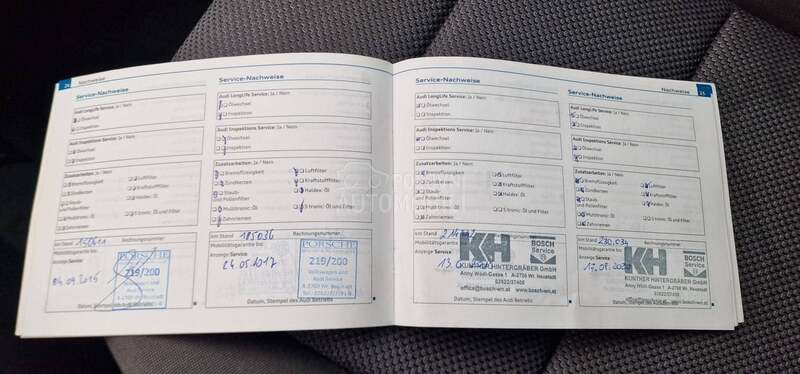 24 Nachweise
Service-Nachweise
Audi LongLife Service: Ja / Nein
Ölwechsel
Inspektion
Audi Inspektions Service: Ja / Nein
Ölwechsel
Inspektion
Zusatzarbeiten: Ja / Nein
Bremsflüssigkeit
Zündkerzen
Staub-
und Pollenfilter
Multitronic: Öl
Zahnriemen
km Stand
Rechnungsnummer:
Mobilitätsgarantie bis:
Anzeige Service:
04.09.2015
PORSCHE
219/200
Volkswagen und
Audi Service
Service-Nachweise
Audi LongLife Service: Ja / Nein
Ölwechsel
Inspektion
Audi Inspektions Service: Ja / Nein
Ölwechsel
Inspektion
Zusatzarbeiten: Ja / Nein
Bremsflüssigkeit
Luftfilter
Zündkerzen
Kraftstofffilter
Staub-
und Pollenfilter
Haldex: Öl
Multitronic: Öl
S tronic: Öl und Filter
Zahnriemen
km Stand 185036
Rechnungsnummer:
Mobilitätsgarantie bis:
Anzeige Service:
24.05.2017
PORSCHE
219/200
Volkswagen und
Audi Service
Datum, Stempel des Audi Betriebs
Service-Nachweise
Audi LongLife Service: Ja / Nein
Ölwechsel
Inspektion
Audi Inspektions Service: Ja / Nein
Ölwechsel
Inspektion
Zusatzarbeiten: Ja / Nein
Bremsflüssigkeit
Luftfilter
Zündkerzen
Kraftstofffilter
Staub-
und Pollenfilter
Haldex: Öl
Multitronic: Öl
S tronic: Öl und Filter
Zahnriemen
km Stand
Rechnungsnummer:
Mobilitätsgarantie bis:
Anzeige Service:
KH
BOSCH
Service
KUNTHER HINTERGRÄBER GmbH
A-2700 Wr. Neustadt
02622/37408
Datum, Stempel des Audi Betriebs
Nachweise 25
Service-Nachweise
Audi LongLife Service: Ja / Nein
Ölwechsel
Inspektion
Audi Inspektions Service: Ja / Nein
Ölwechsel
Inspektion
Zusatzarbeiten: Ja / Nein
Bremsflüssigkeit
Luftfilter
Zündkerzen
Kraftstofffilter
Staub-
und Pollenfilter
Haldex: Öl
Multitronic: Öl
S tronic: Öl und Filter
Zahnriemen
km Stand 230.034
Rechnungsnummer:
Mobilitätsgarantie bis:
Anzeige Service:
KH
BOSCH
Service
KUNTHER HINTERGRÄBER GmbH
A-2700 Wr. Neustadt
02622/37408
Datum, Stempel des Audi Betriebs